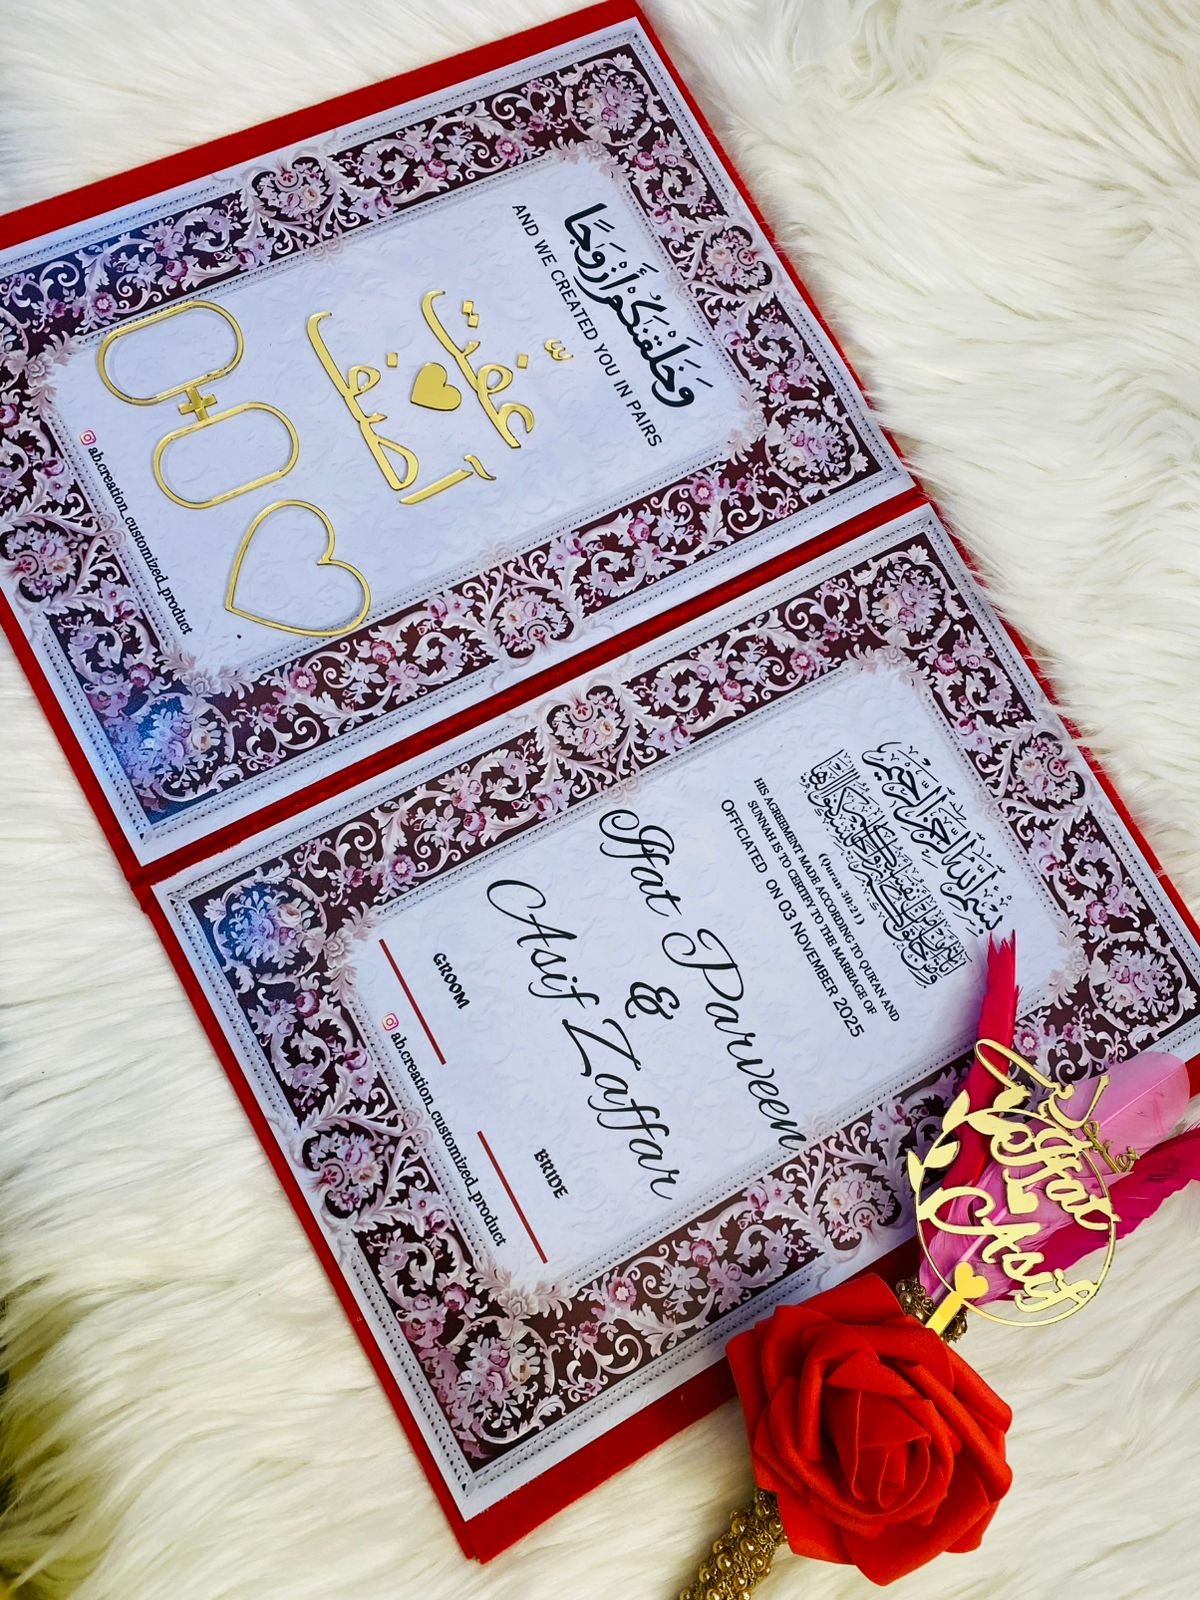 وَخَلَقْنَٰكُمْ أَزْوَٰجًا
AND WE CREATED YOU IN PAIRS
عفّت
آصف
ab.creation_customized_product
بِسْمِ اللهِ الرَّحْمٰنِ الرَّحِيْمِ
(Quran 30:21)
HIS AGREEMENT MADE ACCORDING TO QUR'AN AND
SUNNAH IS TO CERTIFY TO THE MARRIAGE OF
OFFICIATED ON 03 NOVEMBER 2025
Iffat Parveen
&
Asif Zaffar
GROOM BRIDE
ab.creation_customized_product
Iffat
Asif